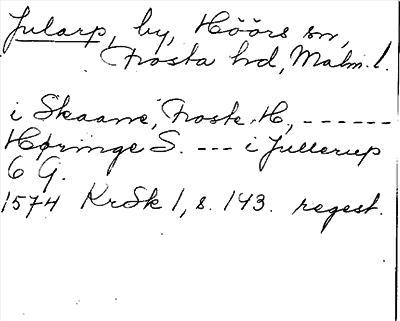 Jularp, by, Höörs sn,
Frosta hd, Malm. l.
i Skaane, Froste H., ------
Høringe S. --- i Jullerup
6 G.
1574 KrSk 1, s. 143. regest.